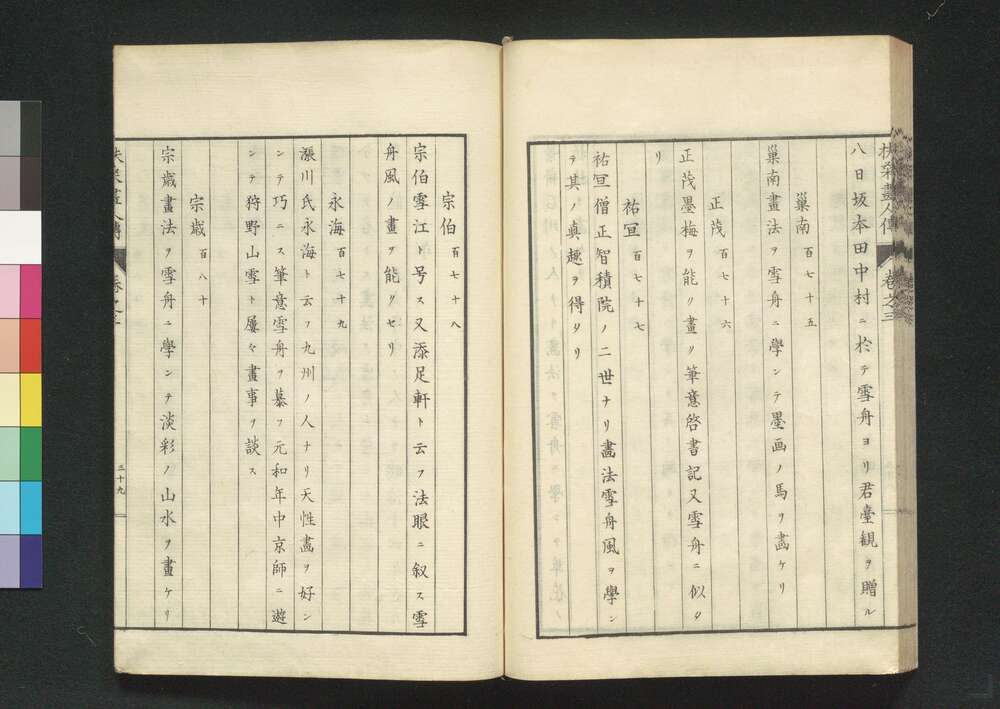 扶桑畫人傳 卷之三
八日坂本田中村ニ於テ雪舟ヨリ君臺観ヲ贈ル
巢南 百七十五
巢南畫法ヲ雪舟ニ學ンテ墨画ノ馬ヲ畵ケリ
正茂 百七十六
正茂墨梅ヲ能ク畫ク筆意啓書記又雪舟ニ似タ
リ
祐宣 百七十七
祐宣僧正智積院ノ二世ナリ畵法雪舟風ヲ學ン
テ其ノ真趣ヲ得タリ
宗伯 百七十八
宗伯雪江ト号ス又添足軒ト云フ法眼ニ叙ス雪
舟風ノ畫ヲ能クセリ
永海 百七十九
漲川氏永海ト云フ九州ノ人ナリ天性畵ヲ好ン
ンテ巧ニス筆意雪舟ヲ慕フ元和年中京師ニ遊
ンテ狩野山雪ト屢々畫事ヲ談ス
宗歳 百八十
宗歳畫法ヲ雪舟ニ學ンテ淡彩ノ山水ヲ畫ケリ
扶桑畫人傳 卷之三 三十九